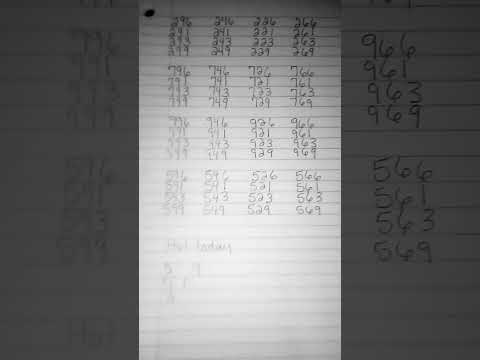 296 246 226 266
291 241 221 261
293 243 223 263
299 249 229 269
796 746 726 766
791 741 721 761
793 743 723 763
799 749 729 769
996 946 926 966
991 941 921 961
993 943 923 963
999 949 929 969
596 546 526 566
591 541 521 561
593 543 523 563
599 549 529 569
Hot today
5 9
966
961
963
969
566
561
563
569